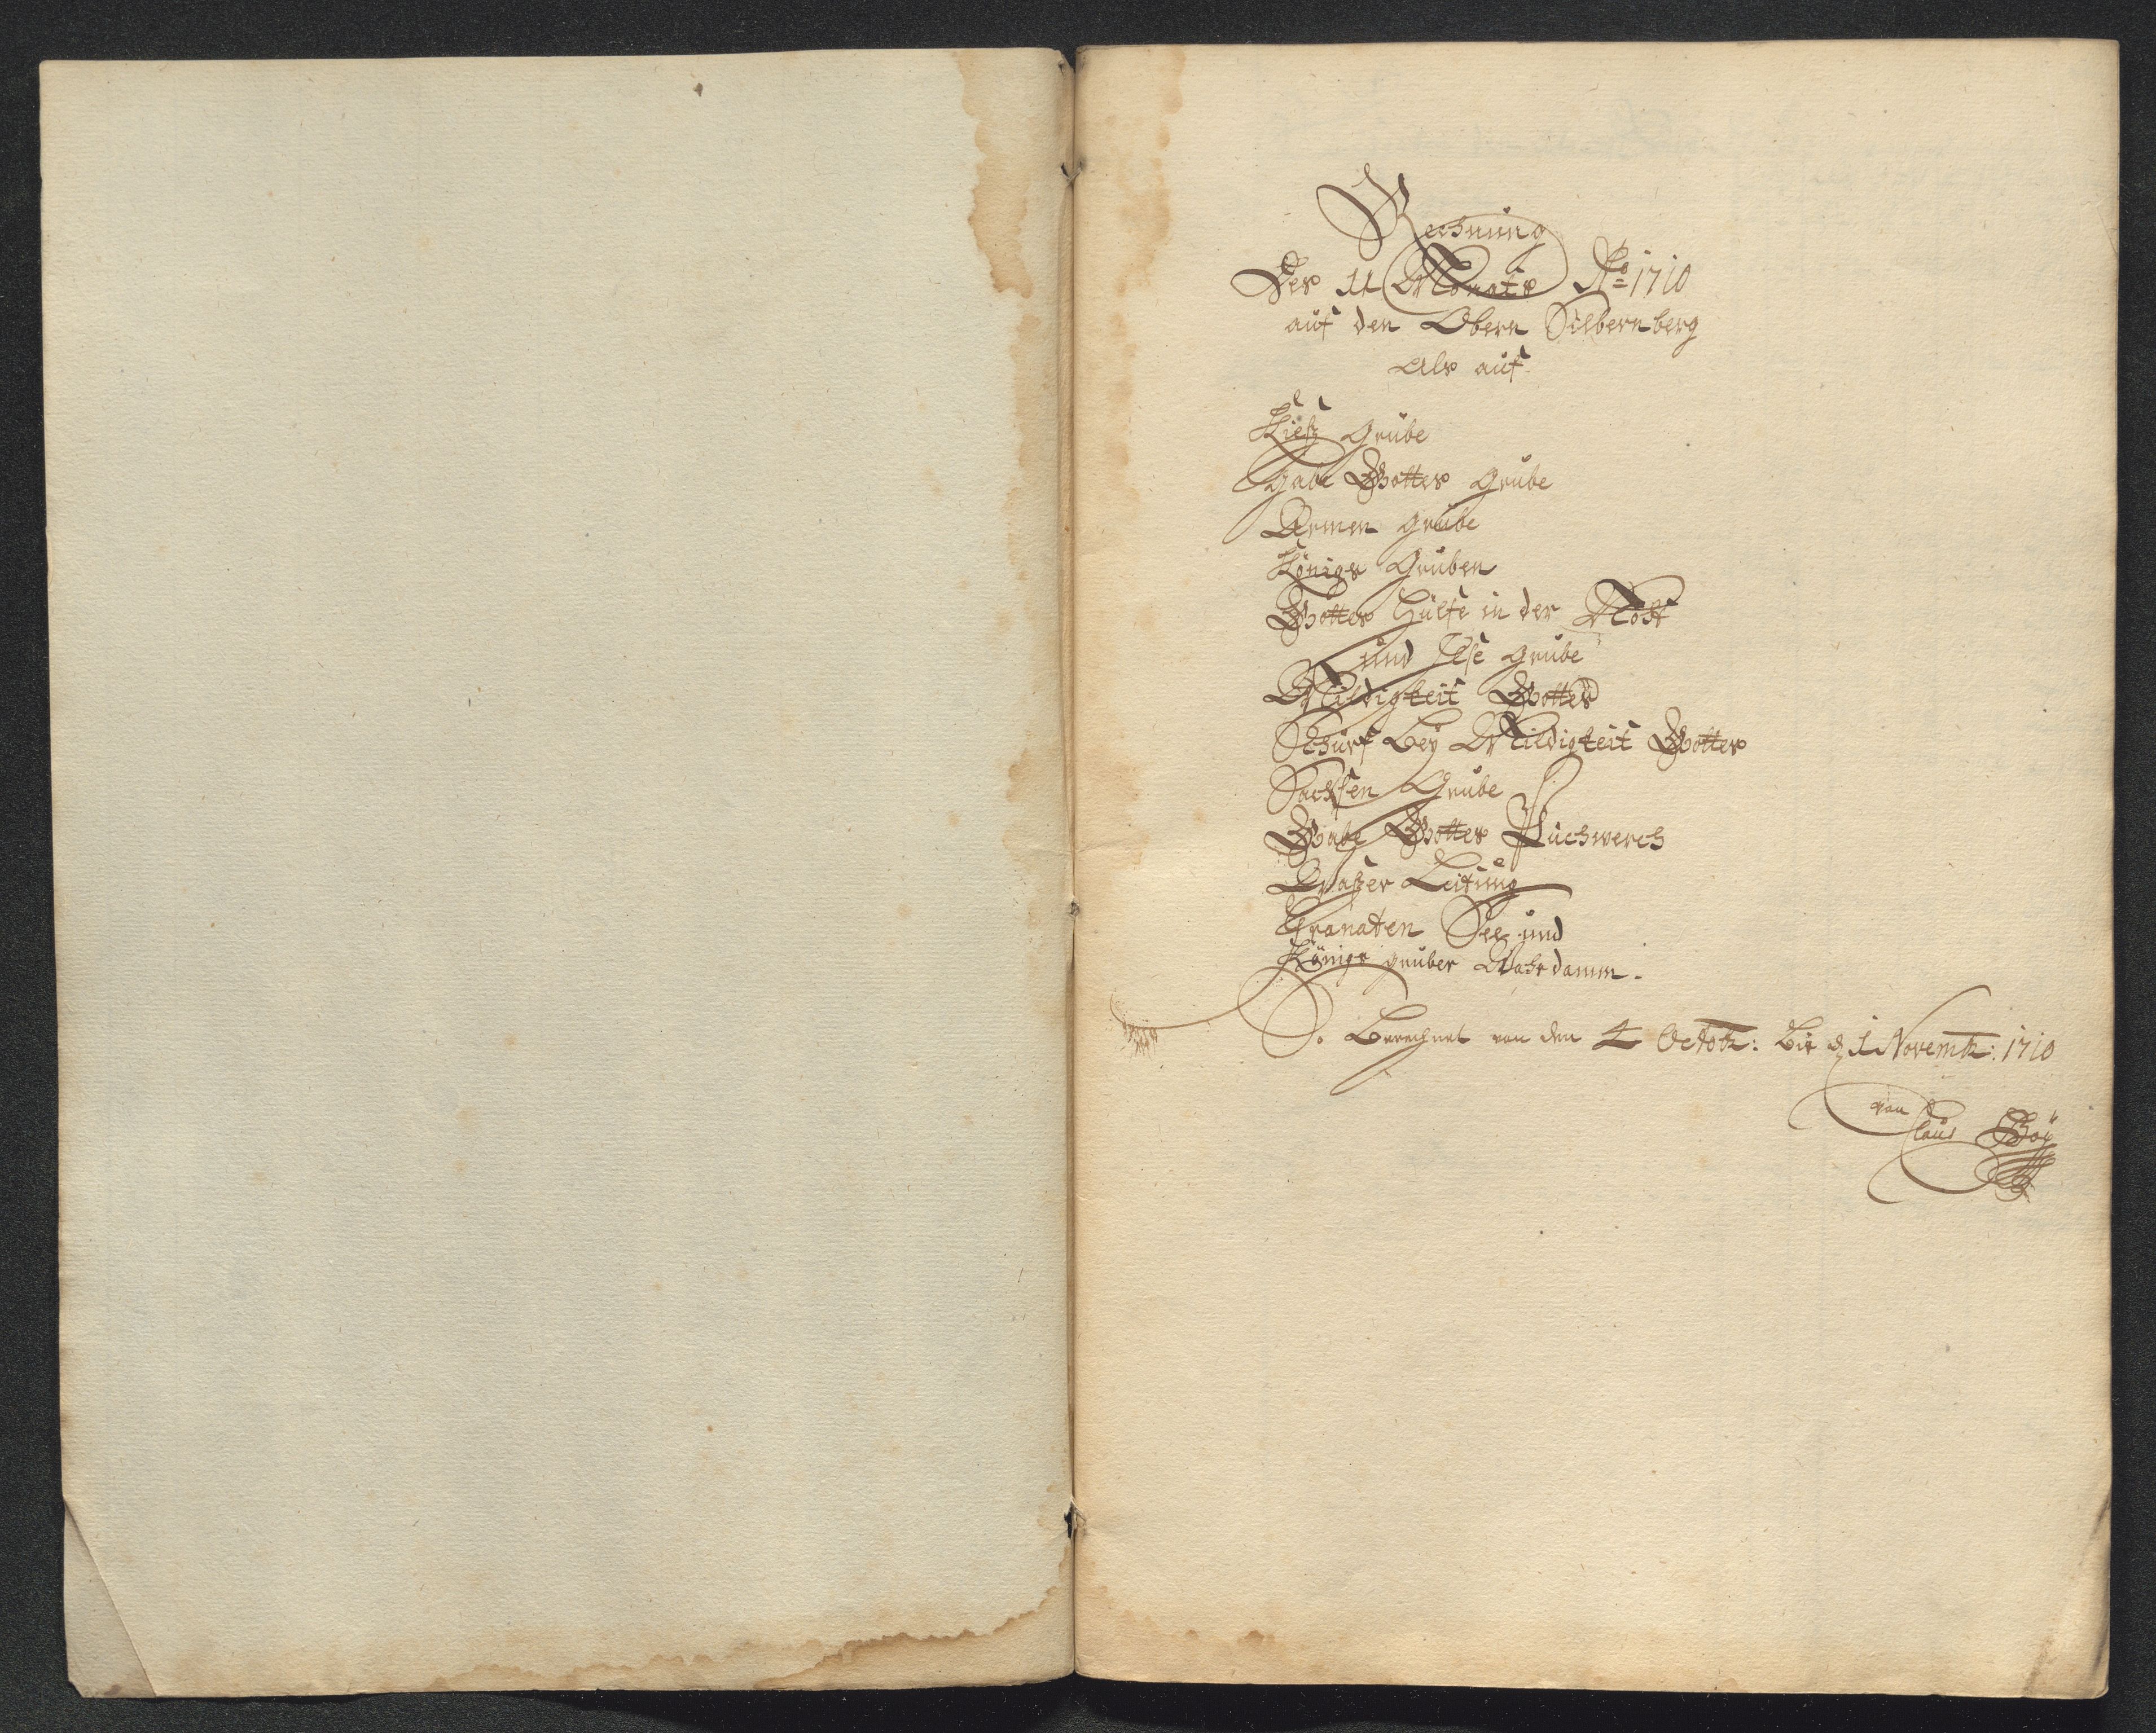 Rechnung
Des 11 Monats Ao 1710
auf den Obern Silbernberg
Als auf
Kieß Grube
Gabe Gottes Grube
Armen Grube
Königs Gruben
Gottes Hülfe in der Noht
und Grube
Mildigkeit Gottes
Schurf bey Mildigkeit Gottes
Sachsen Grube
Gabe Gottes Puchwerch
Waßer Leitung
Granaten See und
Königs gruber damm.
So Berechnet von den 4 Octob: bis d 1 Novemb: 1710
von
Claus Boÿ